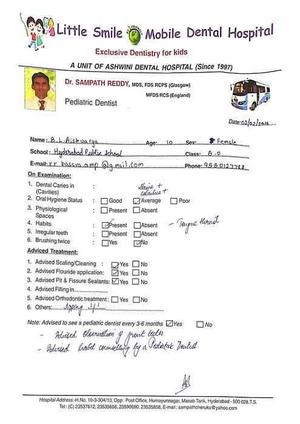 Little Smile Mobile Dental Hospital
Exclusive Dentistry for kids
A UNIT OF ASHWINI DENTAL HOSPITAL (Since 1997)
Dr. SAMPATH REDDY, MDS, FDS RCPS (Glasgow)
MFDS RCPS (England)
Pediatric Dentist
Date:
Name: B.L. Aishwarya Age: 10 Sex: Female
School: Hyderabad Public School Class:
E-mail: Phone:
On Examination:
1. Dental Caries in
(Cavities)
2. Oral Hygiene Status : Good Average Poor
3. Physiological : Present Absent
Spaces
4. Habits : Present Absent - Tongue thrust
5. Irregular teeth : Present Absent
6. Brushing twice : Yes No
Advised Treatment:
1. Advised Scaling/Cleaning : Yes No
2. Advised Flouride application: Yes No
3. Advised Pit & Fissure Sealants: Yes No
4. Advised Filling in
5. Advised Orthodontic treatment : Yes No
6. Others:
Note: Advised to see a pediatric dentist every 3-6 months Yes No
- Advised observation of
- Advised habit counselling by a Pediatric Dentist
Hospital Address: H.No. 10-3-304/13, Opp: Post Office, Humayunnagar, Masab Tank, Hyderabad - 500 028.T.S.
Tel: (C) 23537612, 23535858, 23590690, 23535656, E-mail: sampathcheruku@yahoo.com